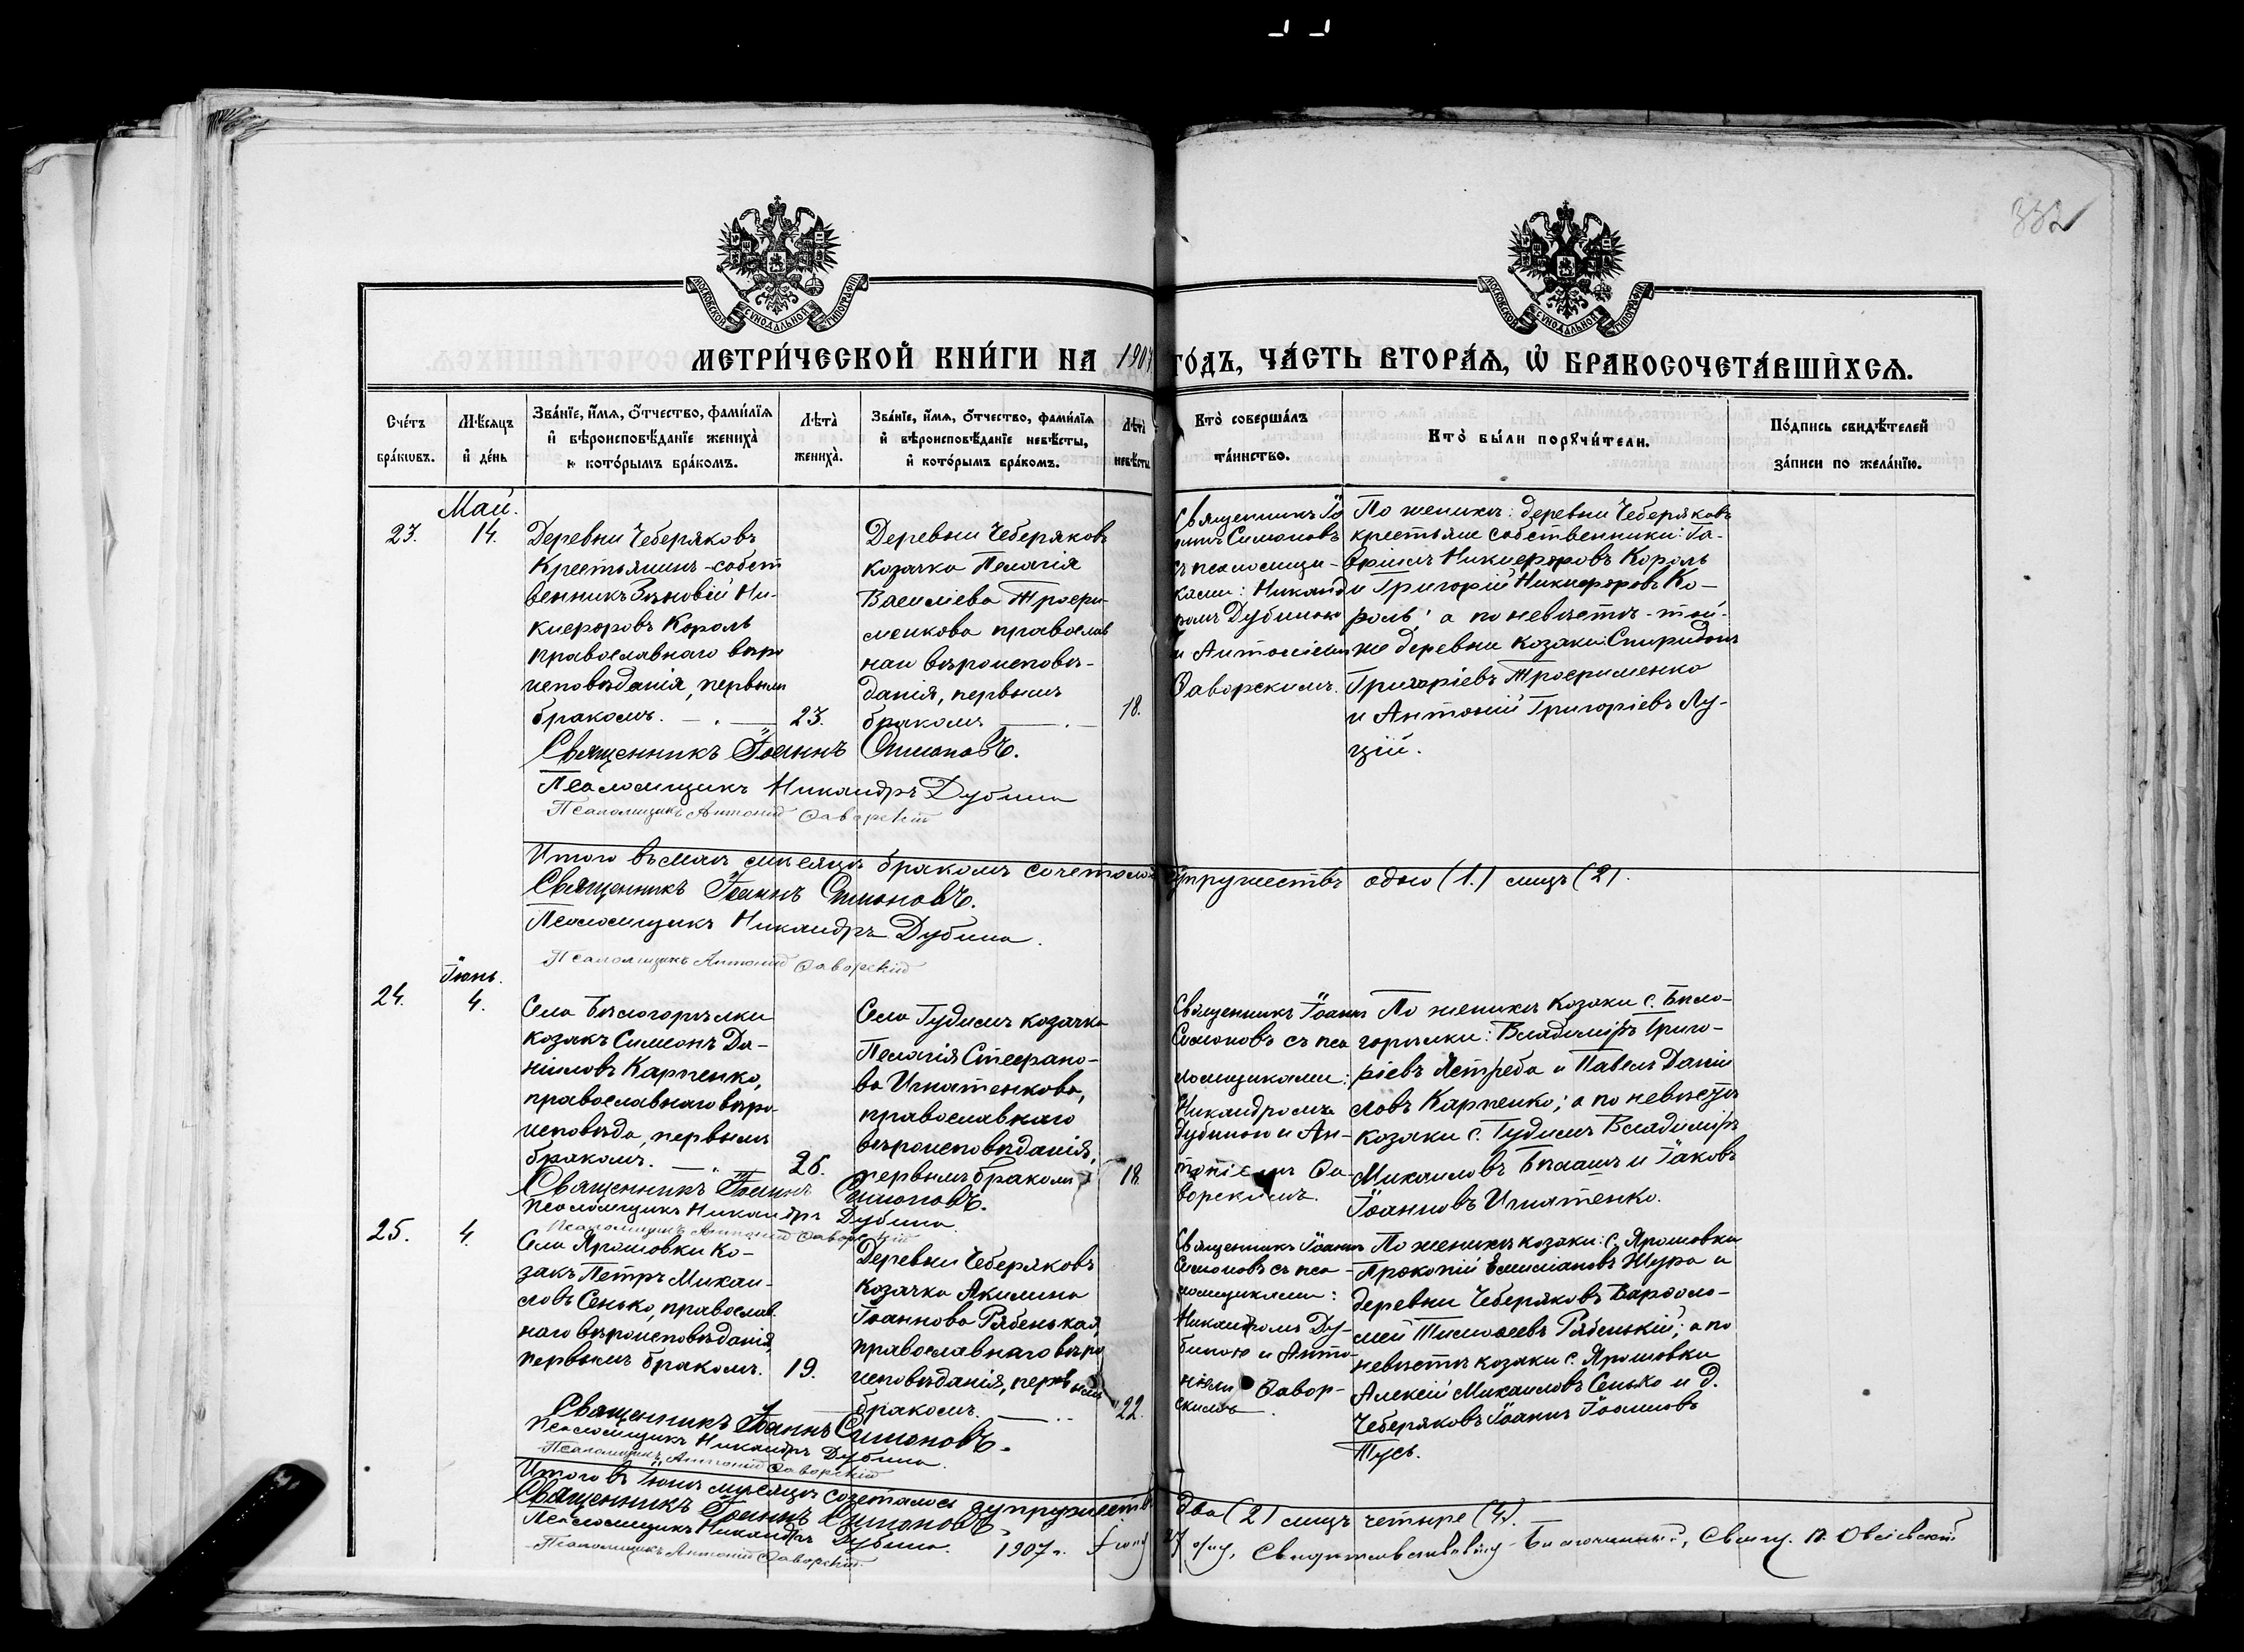 332
МОСКОВСКОЙ СУНОДАЛЬНОЙ ТИПОГРАФІИ
МОСКОВСКОЙ СУНОДАЛЬНОЙ ТИПОГРАФІИ
МЕТРИ́ЧЕСКОЙ КНИ́ГИ НА 1907 ГО́ДЪ, ЧА́СТЬ ВТОРА́Ѧ, Ѽ БРАКОСОЧЕТА́ВШИХСѦ.
Сче́тъ
бра́кѡвъ.
Мѣ́сяцъ
и҆ де́нь
Зва́нїе, и҆́мѧ, ѻ҆́тчество, фами́лїѧ
и҆ вѣроисповѣ́данїе жениха̀
и҆ кото́рымъ бра́комъ.
Лѣта̀
жениха̀.
Зва́нїе, и҆́мѧ, ѻ҆́тчество, фами́лїѧ
и҆ вѣроисповѣ́данїе невѣ́сты,
и҆ кото́рымъ бра́комъ.
Лѣта̀
невѣ́сты
Кто̀ соверша́лъ
та́инство.
Кто̀ бы́ли порꙋчи́тели.
По́дпись свидѣ́телей
за́писи по жела́нїю.
Май.
23.
14.
Деревни Чеберяковъ
Крестьянинъ-собст
венникъ Зѣновій Ни-
кифоровъ Король
православнаго вѣро
исповѣданія, первымъ
бракомъ.
23.
Деревни Чеберяковъ
козачка Пелагія
Василіева Трофи-
менкова православ
наго вѣроисповѣ-
данія, первымъ
бракомъ
18.
Священникъ Іо
аннъ Симоновъ
съ псаломщи-
ками: Никанд
ромъ Дубиною
и Антоніемъ
Ѳаворскимъ.
По женихѣ: деревни Чеберяковъ
крестьяне собственники: Га-
вріилъ Никифоровъ Король
и Григорій Никифоровъ Ко-
роль; а по невѣстѣ - той-
же деревни козаки: Спиридонъ
Григоріевъ Трофименко
и Антоній Григоріевъ Лу-
цій.
Священникъ Іоаннъ Симоновъ.
Псаломщикъ Никандръ Дубина
Псаломщикъ Антоній Ѳаворскій
Итого въ маѣ мѣсяцѣ бракомъ сочеталось супружествъ одно (1.) лицъ (2).
Священникъ Іоаннъ Симоновъ.
Псаломщикъ Никандръ Дубина.
Псаломщикъ Антоній Ѳаворскій
Іюнь.
24.
4.
Села Бѣлогорѣлки
козакъ Симеонъ Да-
ніиловъ Карпенко,
православнаго вѣро-
исповѣда, первымъ
бракомъ.
26.
Села Гудимъ козачка
Пелагія Стефано-
ва Игнатенкова,
православнаго
вѣроисповѣданія,
первымъ бракомъ
18.
Священникъ Іоаннъ
Симоновъ съ пса
ломщиками:
Никандромъ
Дубиною и Ан-
тоніемъ Ѳа-
ворскимъ.
По женихѣ козаки с. Бѣло-
горѣлки: Владиміръ Григо-
ріевъ Ястреба и Павелъ Даніи
ловъ Карпенко; а по невѣстѣ
козаки с. Гудимъ Владиміръ
Михаиловъ Билашъ и Іаковъ
Іоанновъ Игнатенко.
Священникъ Іоаннъ Симоновъ.
Псаломщикъ Никандръ Дубина
Псаломщикъ Антоній Ѳаворскій
25.
4.
Села Ярошовки ко-
закъ Петръ Михаи-
ловъ Сенько, православ
наго вѣроисповѣданія,
первымъ бракомъ.
19.
Деревни Чеберяковъ
козачка Акилина
Іоаннова Рябенькая,
православнаго вѣро
исповѣданія, первымъ
бракомъ.
22.
Священникъ Іоаннъ
Симоновъ съ пса-
ломщиками:
Никандромъ Ду-
биною и Анто-
ніемъ Ѳавор-
скимъ.
По женихѣ козаки: с. Ярошовки
Прокопій Емиліановъ Жура и
деревни Чеберяковъ Варѳоло-
мей Тимоѳеевъ Рябенькій; а по
невѣстѣ козаки с. Ярошовки
Алексій Михаиловъ Сенько и д.
Чеберяковъ Іоаннъ Іоанновъ
Тусь.
Священникъ Іоаннъ Симоновъ.
Псаломщикъ Никандръ Дубина.
Псаломщикъ Антоній Ѳаворскій
Итого въ Іюнѣ мѣсяцѣ сочеталось супружествъ два (2) лицъ четыре (4).
Священникъ Іоаннъ Симоновъ.
Псаломщикъ Никандръ Дубина.
Псаломщикъ Антоній Ѳаворскій.
1907 г. 27 Благочинный, Свящ.